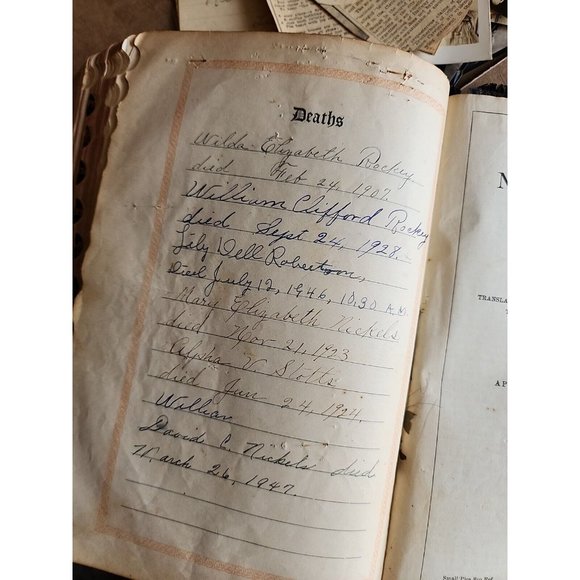 Deaths
Wilda Elizabeth Rockey
died Feb 24, 1907.
William Clifford Rockey
died Sept 24, 1928.
Lily Dell Robertson,
Died July 12, 1946, 10:30 A.M.
Mary Elizabeth Nickels
died Nov 21, 1923
Alpha V. Stotts
died Jan 24, 1924.
William
David C. Nickels died
March 26, 1947.
N
TRANSLA
T
A P